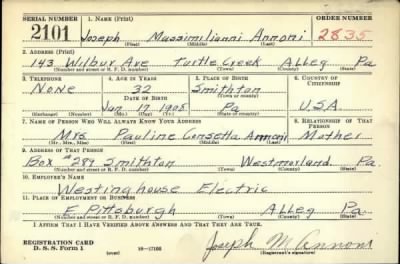 SERIAL NUMBER 1. NAME (Print) ORDER NUMBER
2101 Joseph Massimilianni Annoni 2835
(First) (Middle) (Last)
2. ADDRESS (Print)
143 Wilbur Ave Turtle Creek Alleg Pa
(Number and street or R. F. D. number) (Town) (County) (State)
3. TELEPHONE 4. AGE IN YEARS 5. PLACE OF BIRTH 6. COUNTRY OF CITIZENSHIP
None 32 Smithton
DATE OF BIRTH (Town or county)
Jan 17 1908 Pa U.S.A.
(Mo.) (Day) (Yr.) (State or country)
7. NAME OF PERSON WHO WILL ALWAYS KNOW YOUR ADDRESS 8. RELATIONSHIP OF THAT PERSON
Mrs Pauline Consetta Annoni Mother
(Mr., Mrs., Miss) (First) (Middle) (Last)
9. ADDRESS OF THAT PERSON
Box #289 Smithton Westmorland Pa.
(Number and street or R. F. D. number) (Town) (County) (State)
10. EMPLOYER'S NAME
Westinghouse Electric
11. PLACE OF EMPLOYMENT OR BUSINESS
E Pittsburgh Alleg Pa.
(Number and street or R. F. D. number) (Town) (County) (State)
I AFFIRM THAT I HAVE VERIFIED ABOVE ANSWERS AND THAT THEY ARE TRUE.
REGISTRATION CARD Joseph M Annoni
D. S. S. Form 1 (over) 16—17105 (Registrant's signature)